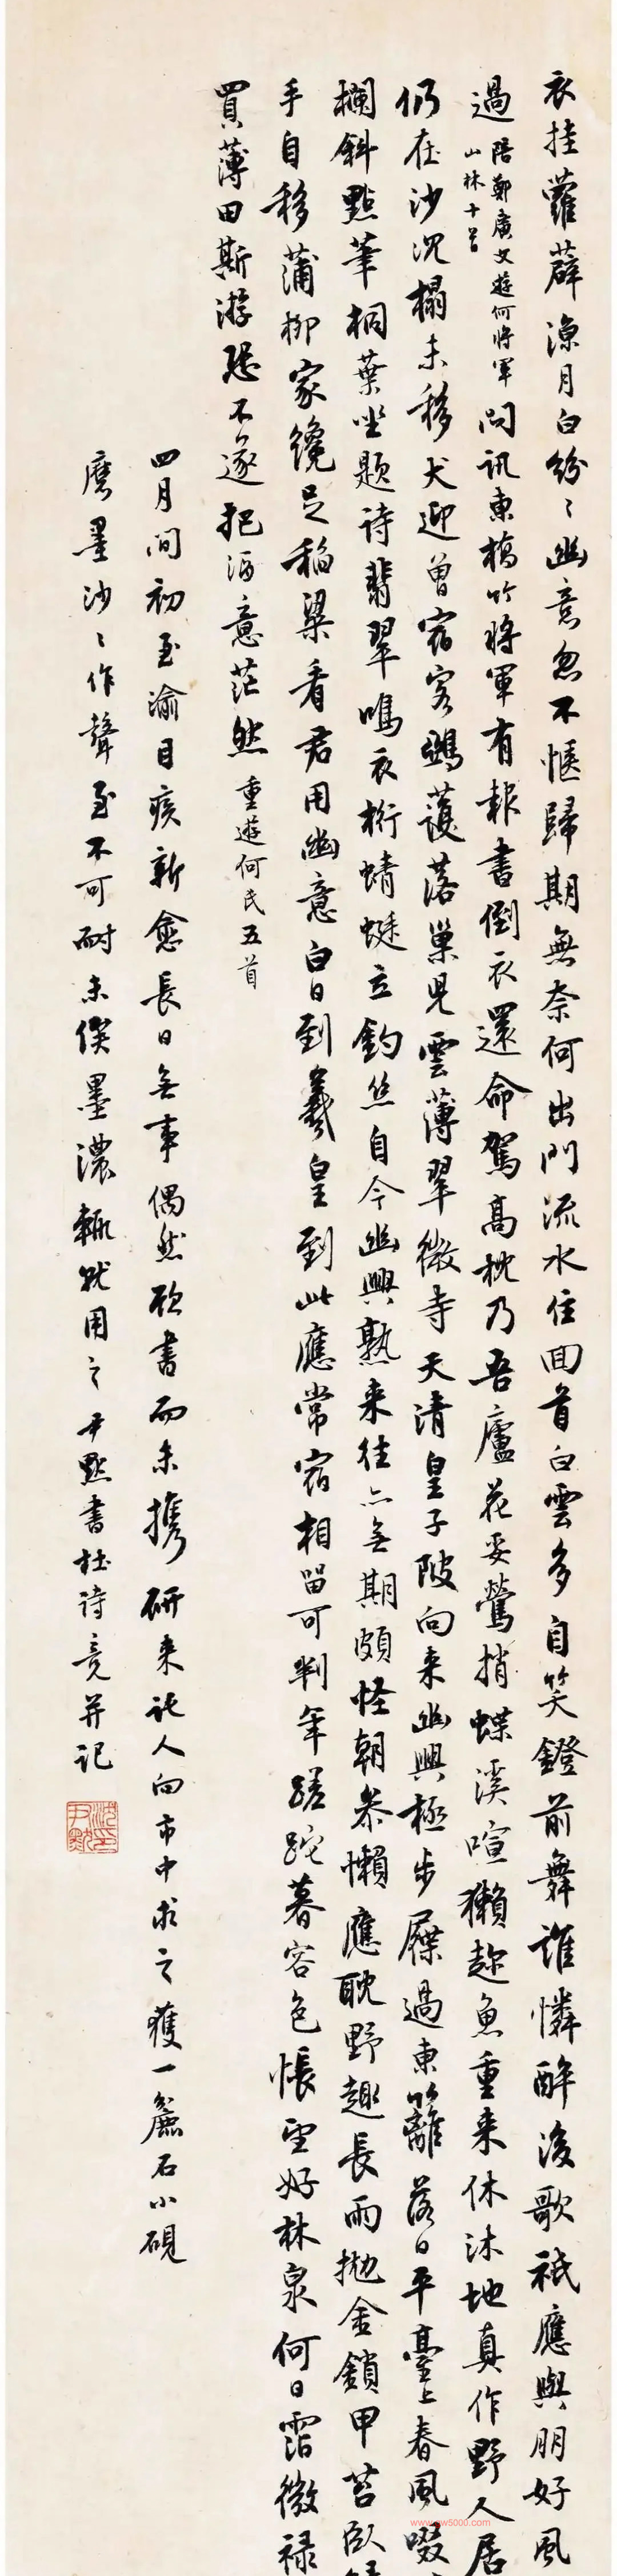 衣挂蘿薜涼月白紛〻幽意忽不愜歸期無奈何出門流水住回首白雲多自笑鐙前舞誰憐醉後歌祇應與朋好風
過陪鄭廣文遊何將軍
山林十首
問訊東橋竹將軍有報書倒衣還命駕高枕乃吾廬花妥鶯捎蝶溪喧獺趁魚重來休沐地真作野人居
仍在沙沉榻未移犬迎曾宿客鴉護落巢兒雲薄翠微寺天清皇子陂向來幽興極步屧過東籬落日平臺上春風啜
欄斜點筆桐葉坐題詩翡翠鳴衣桁蜻蜓立釣絲自今幽興熟來往亦無期頗怪朝參懶應耽野趣長雨拋金鎖甲苔臥
手自移蒲柳家纔足稻粱看君用幽意白日到羲皇到此應常宿相留可判年蹉跎暮容色悵望好林泉何日霑微祿
買薄田斯游恐不遂把酒意茫然重遊何氏五首
四月間初至渝目疾新愈長日無事偶然欲書而未攜研來託人向市中求之獲一麄石小硯
磨墨沙〻作聲至不可耐未俟墨濃輒就用之尹默書杜詩竟并記
沈尹默
www.yw5000.com